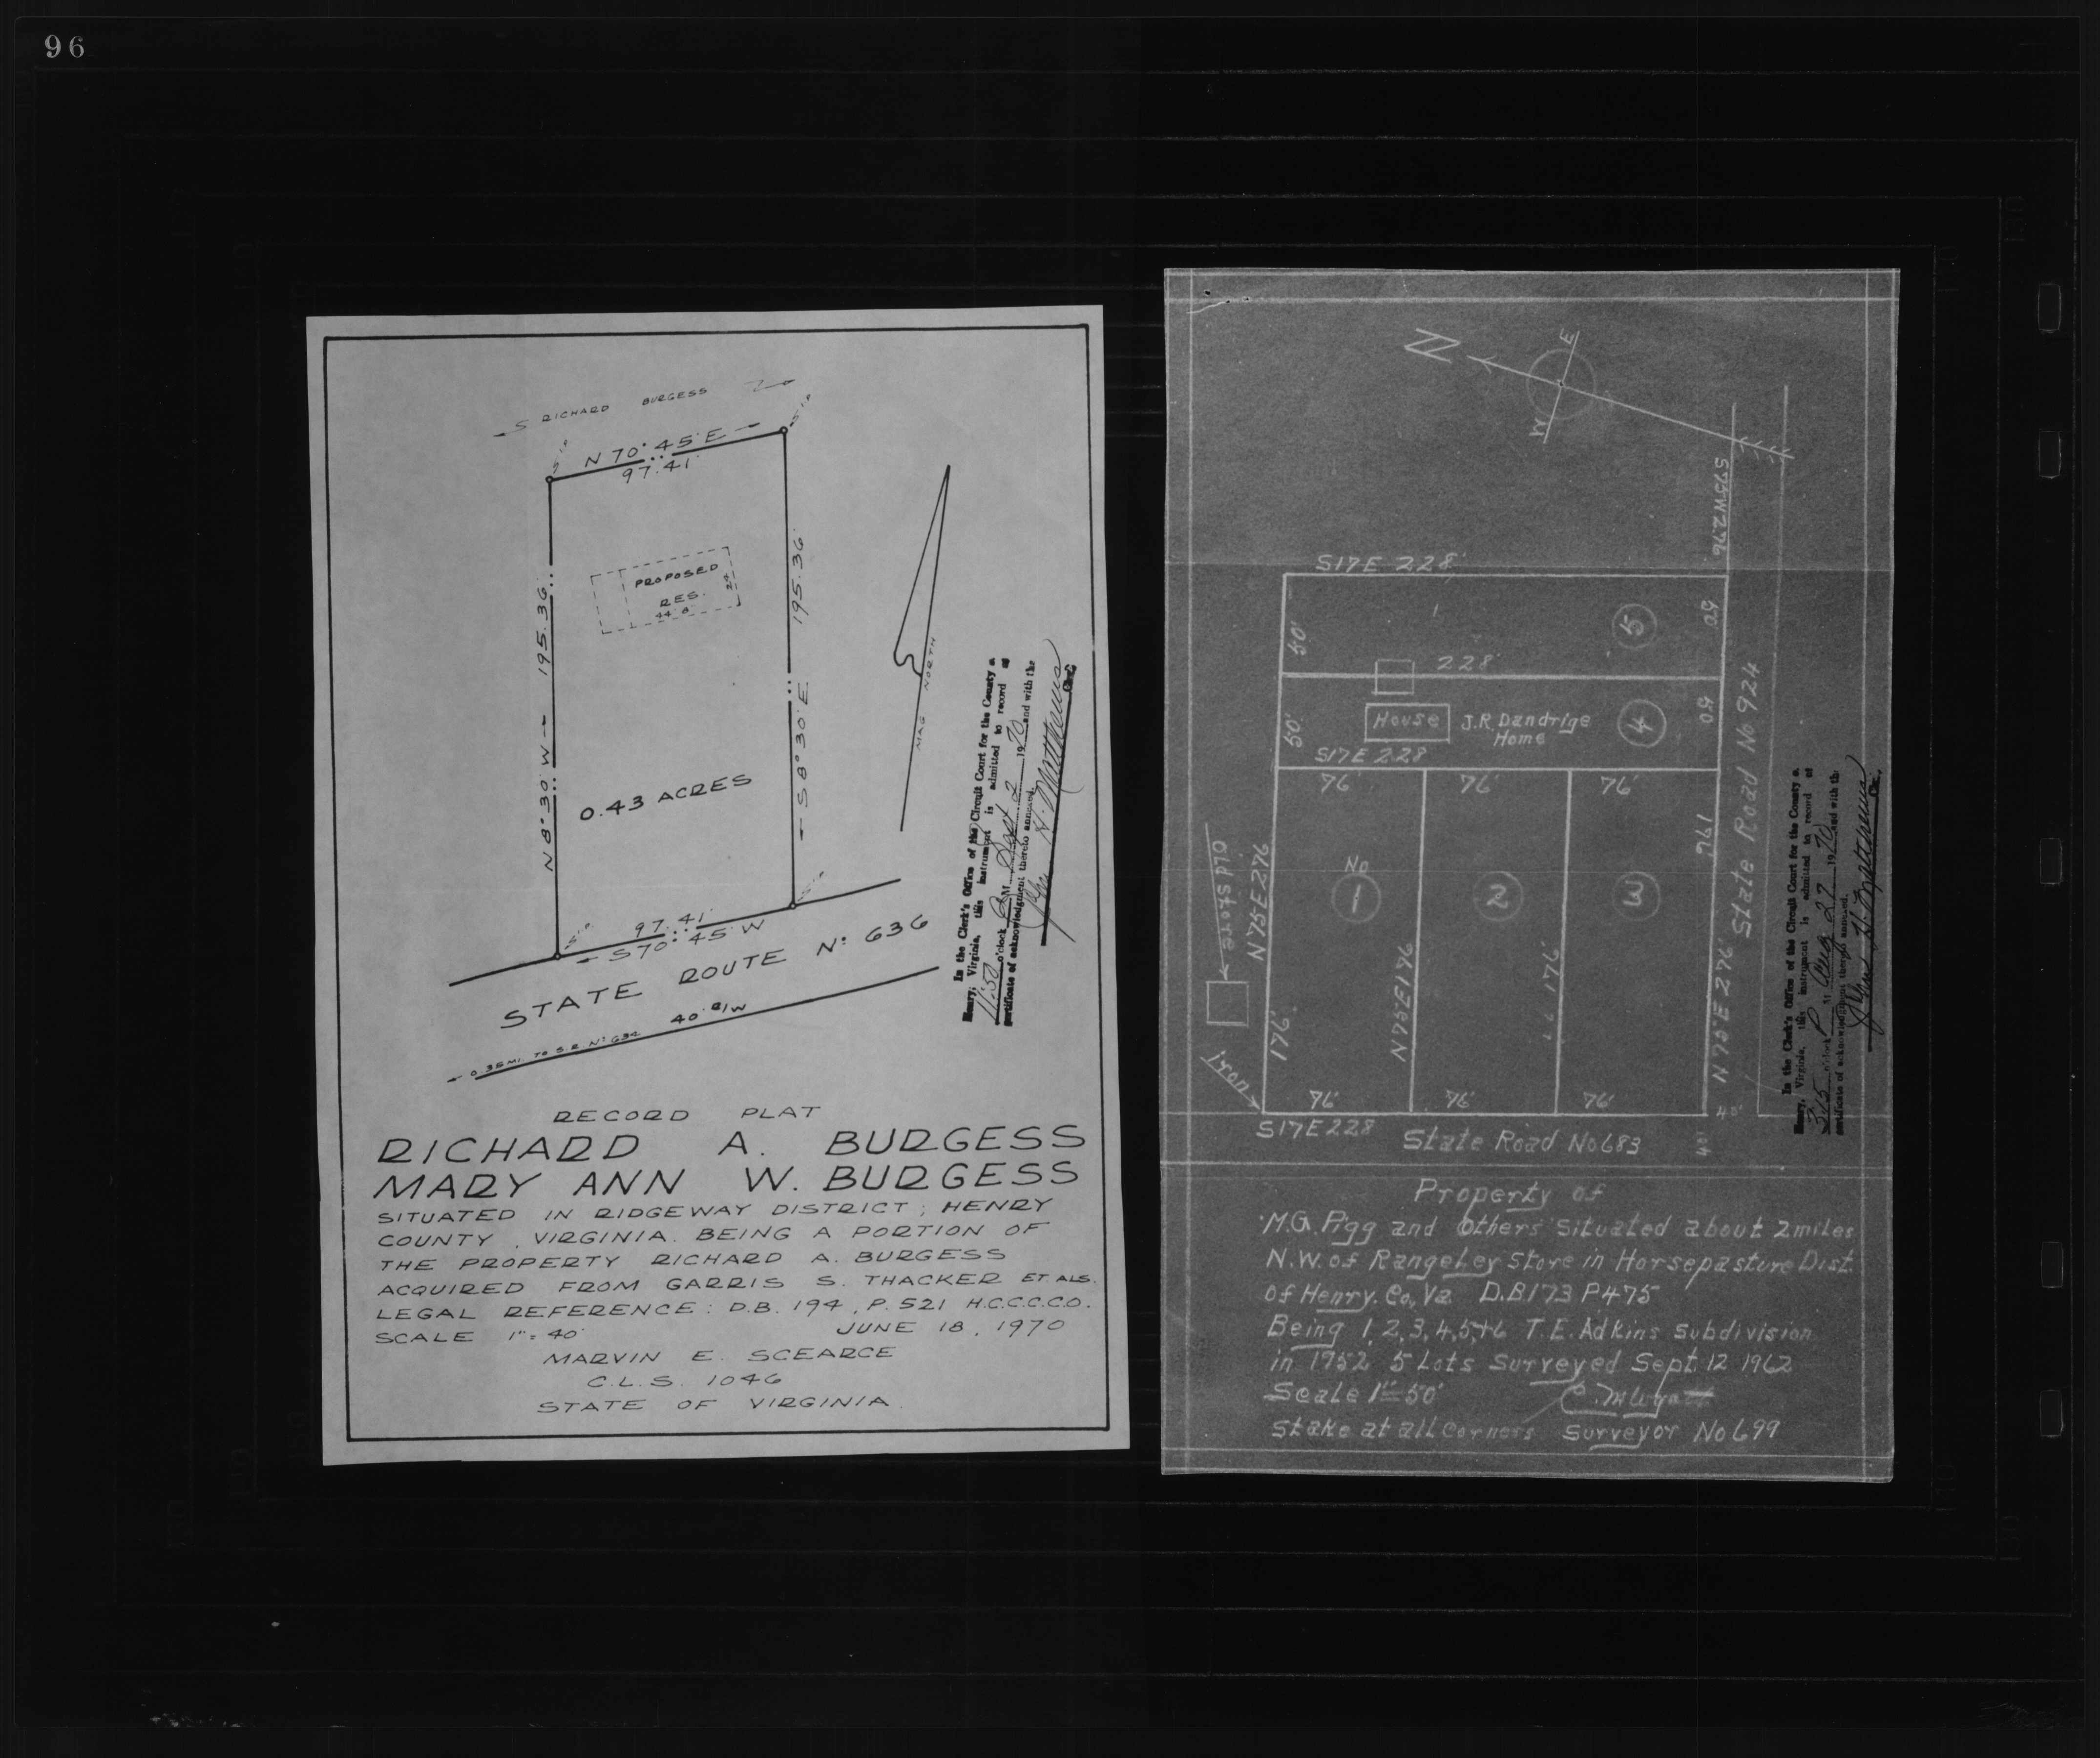 96
S RICHARD BURGESS
N 70° 45' E
97.41'
N 8° 30' W 195.36
S 8° 30' E 195.36'
PROPOSED
RES.
44' 8"
24'
0.43 ACRES
MAG NORTH
97.41'
S 70° 45' W
STATE ROUTE Nº 636
40' R/W
0.35 MI. TO S.R. Nº 634
In the Clerk's Office of the Circuit Court for the County o
Henry, Virginia, this instrument is admitted to record at
11:50 o'clock A M Sept 2 1970 and with the
certificate of acknowledgment thereto annexed.
H. Matthews
Clerk
RECORD PLAT
RICHARD A. BURGESS
MARY ANN W. BURGESS
SITUATED IN RIDGEWAY DISTRICT, HENRY
COUNTY, VIRGINIA. BEING A PORTION OF
THE PROPERTY RICHARD A. BURGESS
ACQUIRED FROM GARRIS S. THACKER ET. ALS.
LEGAL REFERENCE: D.B. 194, P. 521 H.C.C.C.C.O.
SCALE 1" = 40' JUNE 18, 1970
MARVIN E. SCEARCE
C.L.S. 1046
STATE OF VIRGINIA
N
E
W
S75W276
S17E 228'
50'
5
50
228'
House
J.R. Dandrige
Home
4
50'
50
S17E 228
76' 76' 76'
No
1
2
3
Old store
N75E276
176'
N75E176
176'
176'
N75E 276'
State Road No 924
Iron
76' 76' 76'
40'
S17E228
State Road No 683
40'
In the Clerk's Office of the Circuit Court for the County o
Henry, Virginia, this instrument is admitted to record at
3:15 o'clock P M Aug 27 1970 and with th
certificate of acknowledgment thereto annexed.
H. Matthews
Property of
M.G. Pigg and Others Situated about 2 miles
N.W. of Rangeley Store in Horsepasture Dist.
of Henry. Co., Va D.B173 P475
Being 1, 2, 3, 4, 5, +6 T.E. Adkins Subdivision
in 1952 5 Lots Surveyed Sept. 12 1962
Scale 1"=50'
Stake at all Corners Surveyor No 699